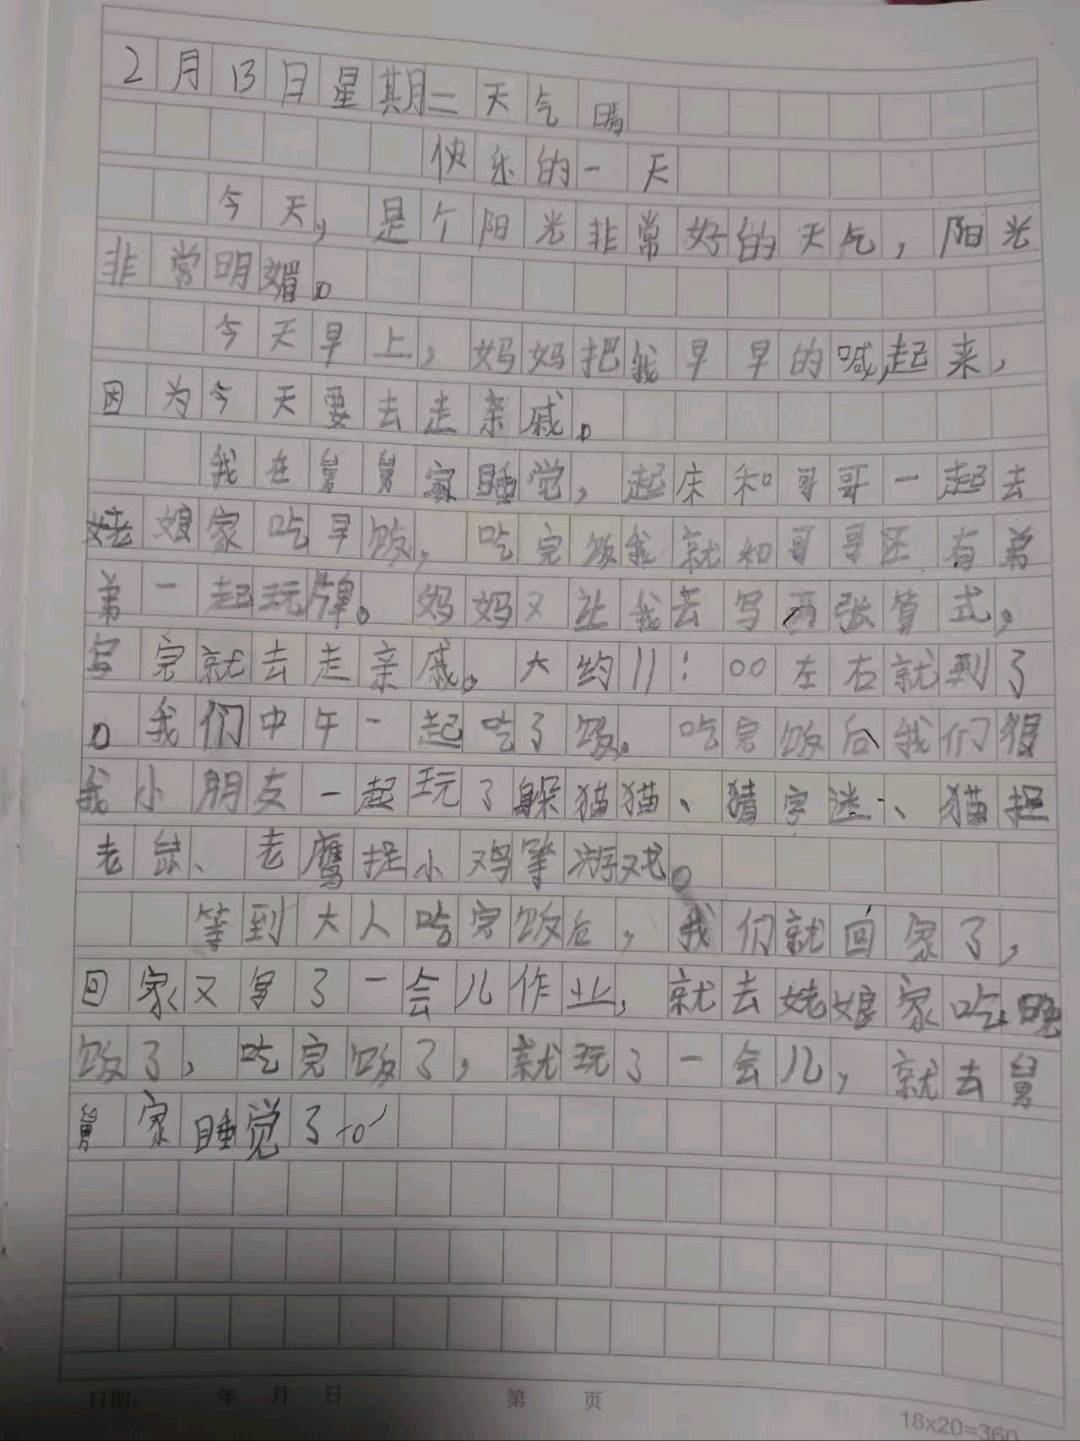 2月13日星期二天气晴
快乐的一天
今天，是个阳光非常好的天气，阳光
非常明媚。
今天早上，妈妈把我早早的喊起来，
因为今天要去走亲戚。
我在舅舅家睡觉，起床和哥哥一起去
姥娘家吃早饭，吃完饭我就和哥哥还有弟
弟一起玩牌。妈妈又让我去写两张算式，
写完就去走亲戚。大约11：00左右就到了
。我们中午一起吃了饭。吃完饭后我们
我小朋友一起玩了躲猫猫、猜字迷、猫捉
老鼠、老鹰捉小鸡等游戏。
等到大人吃完饭后，我们就回家了，
回家又写了一会儿作业，就去姥娘家吃晚
饭了，吃完饭了，就玩了一会儿，就去舅
舅家睡觉了。
日期： 年 月 日 第 页
18x20=360